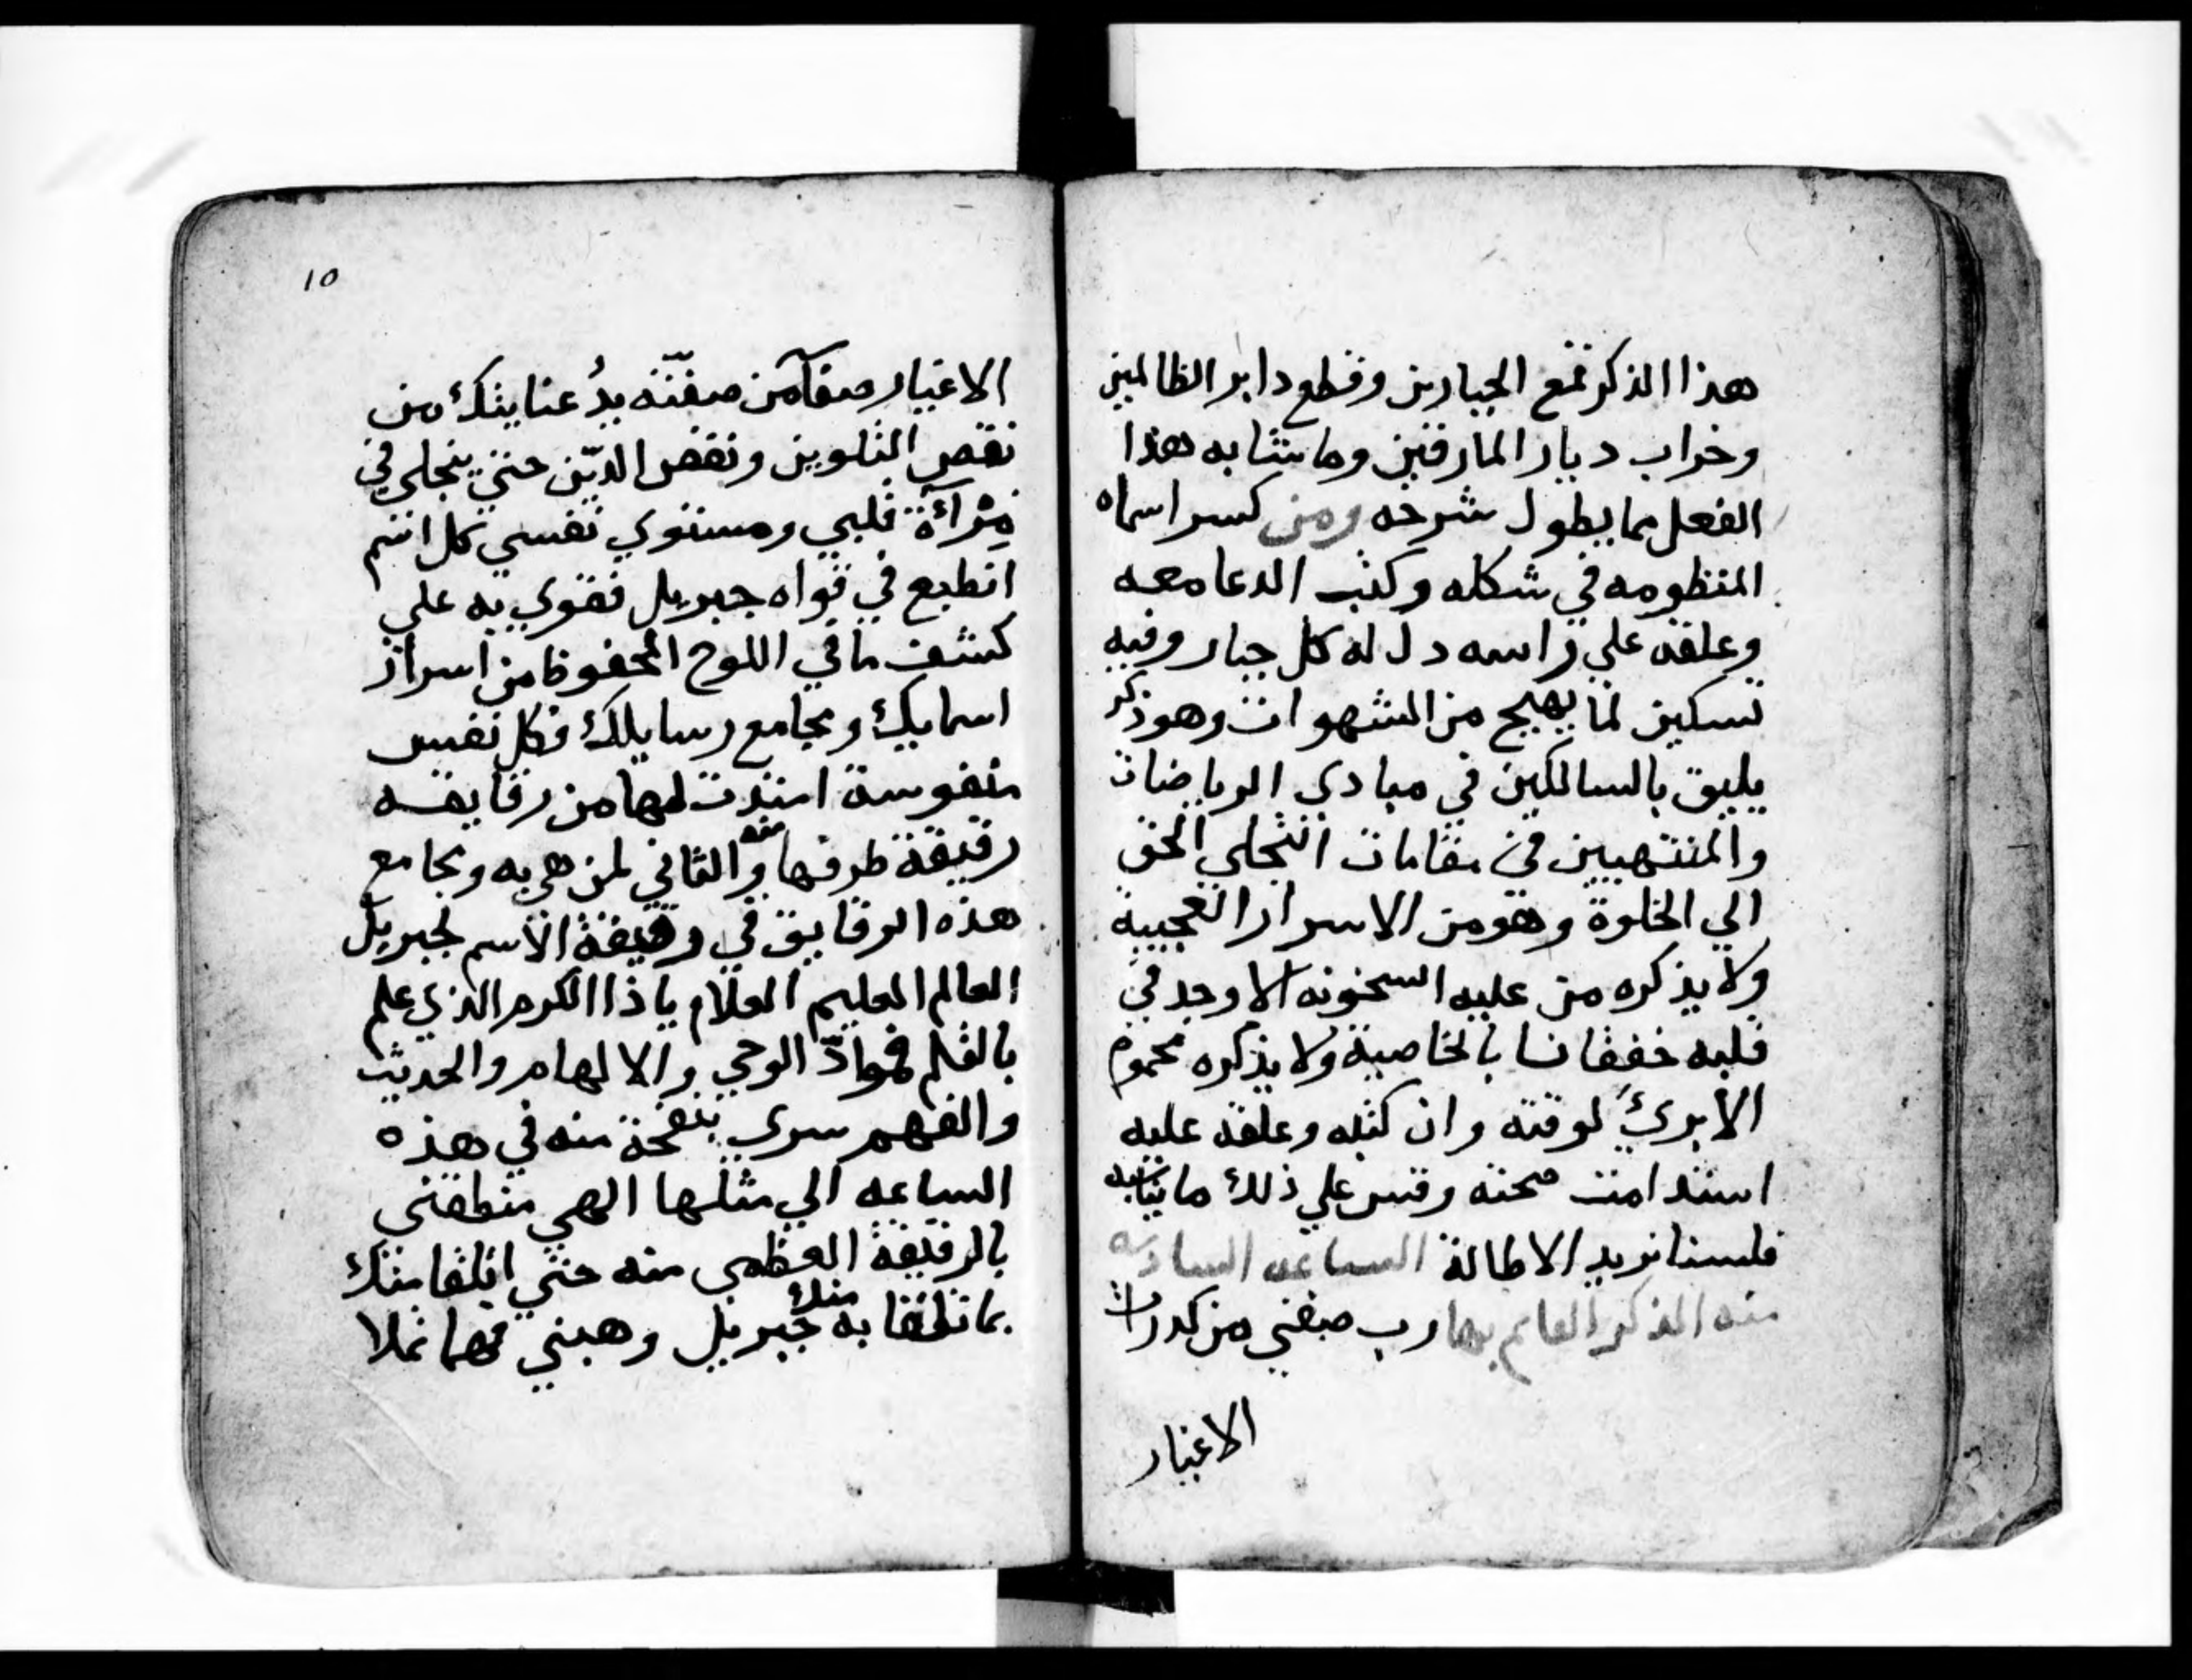 هذا الذكر قمع الجبارين وقطع دابر الظالمين
وخراب ديار المارقين وما يتشابه هذا
الفعل مما يطول شرحه ومن كسر اسماه
المنظومه في شكله وكتب الدعا معه
وعلقه علي راسه دل له كل جبار وفيه
تسكين لما يهيج من الشهوات وهو ذكر
يليق بالسالكين في مبادي الرياضات
والمنتهيين في مقامات التجلي الحق
الي الخلوة وهو من الاسرار العجيبة
ولا يذكره من عليه السخونه الا وجد في
قلبه خفقانا بالخاصية ولا يذكره محموم
الا برئ لوقته وان كتبه وعلقه عليه
استدامت صحته وقس علي ذلك ما يشابه
فلسنا نريد الاطالة الساعه السادسه
منه الذكر القايم بها رب صفني من كدورات
الاغيار
10
الاغيار صفآ من صفّته يدُ عنايتك من
نقص التلوين ونقص الديّن حتي ينجلي في
مِرْآة قلبي ومستوي نفسي كل اسم
انطبع في قواه جبريل فقوي به علي
كشف ما في اللوح المحفوظ من اسرار
اسمايك ومجامع رسايلك فكل نفس
منفوسة امتدت لها من رقايقه
رقيقة طرفها منه والثاني لمن هي به ومجامع
هذه الرقايق في رقيقة الاسم لجبريل
العالم العليم العلام يا ذا الكرم الذي علم
بالقلم فموادّ الوحي والالهام والحديث
والفهم سري بنفحة منه في هذه
الساعه الي مثلها الهي منطقني
بالرقيقة العظمي منه حتي اتلقا منك
بما تلقا به جبريل منك وهبني فهما تملا